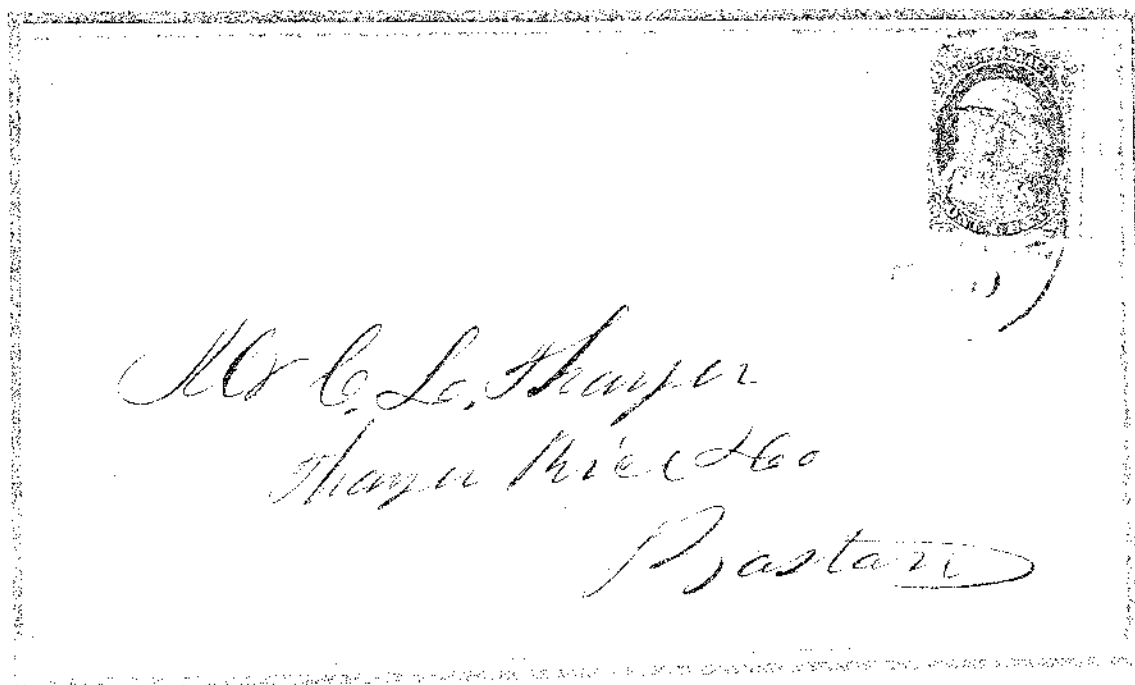 Mr C. L. Thayer
Thayer Rice & Co
Boston